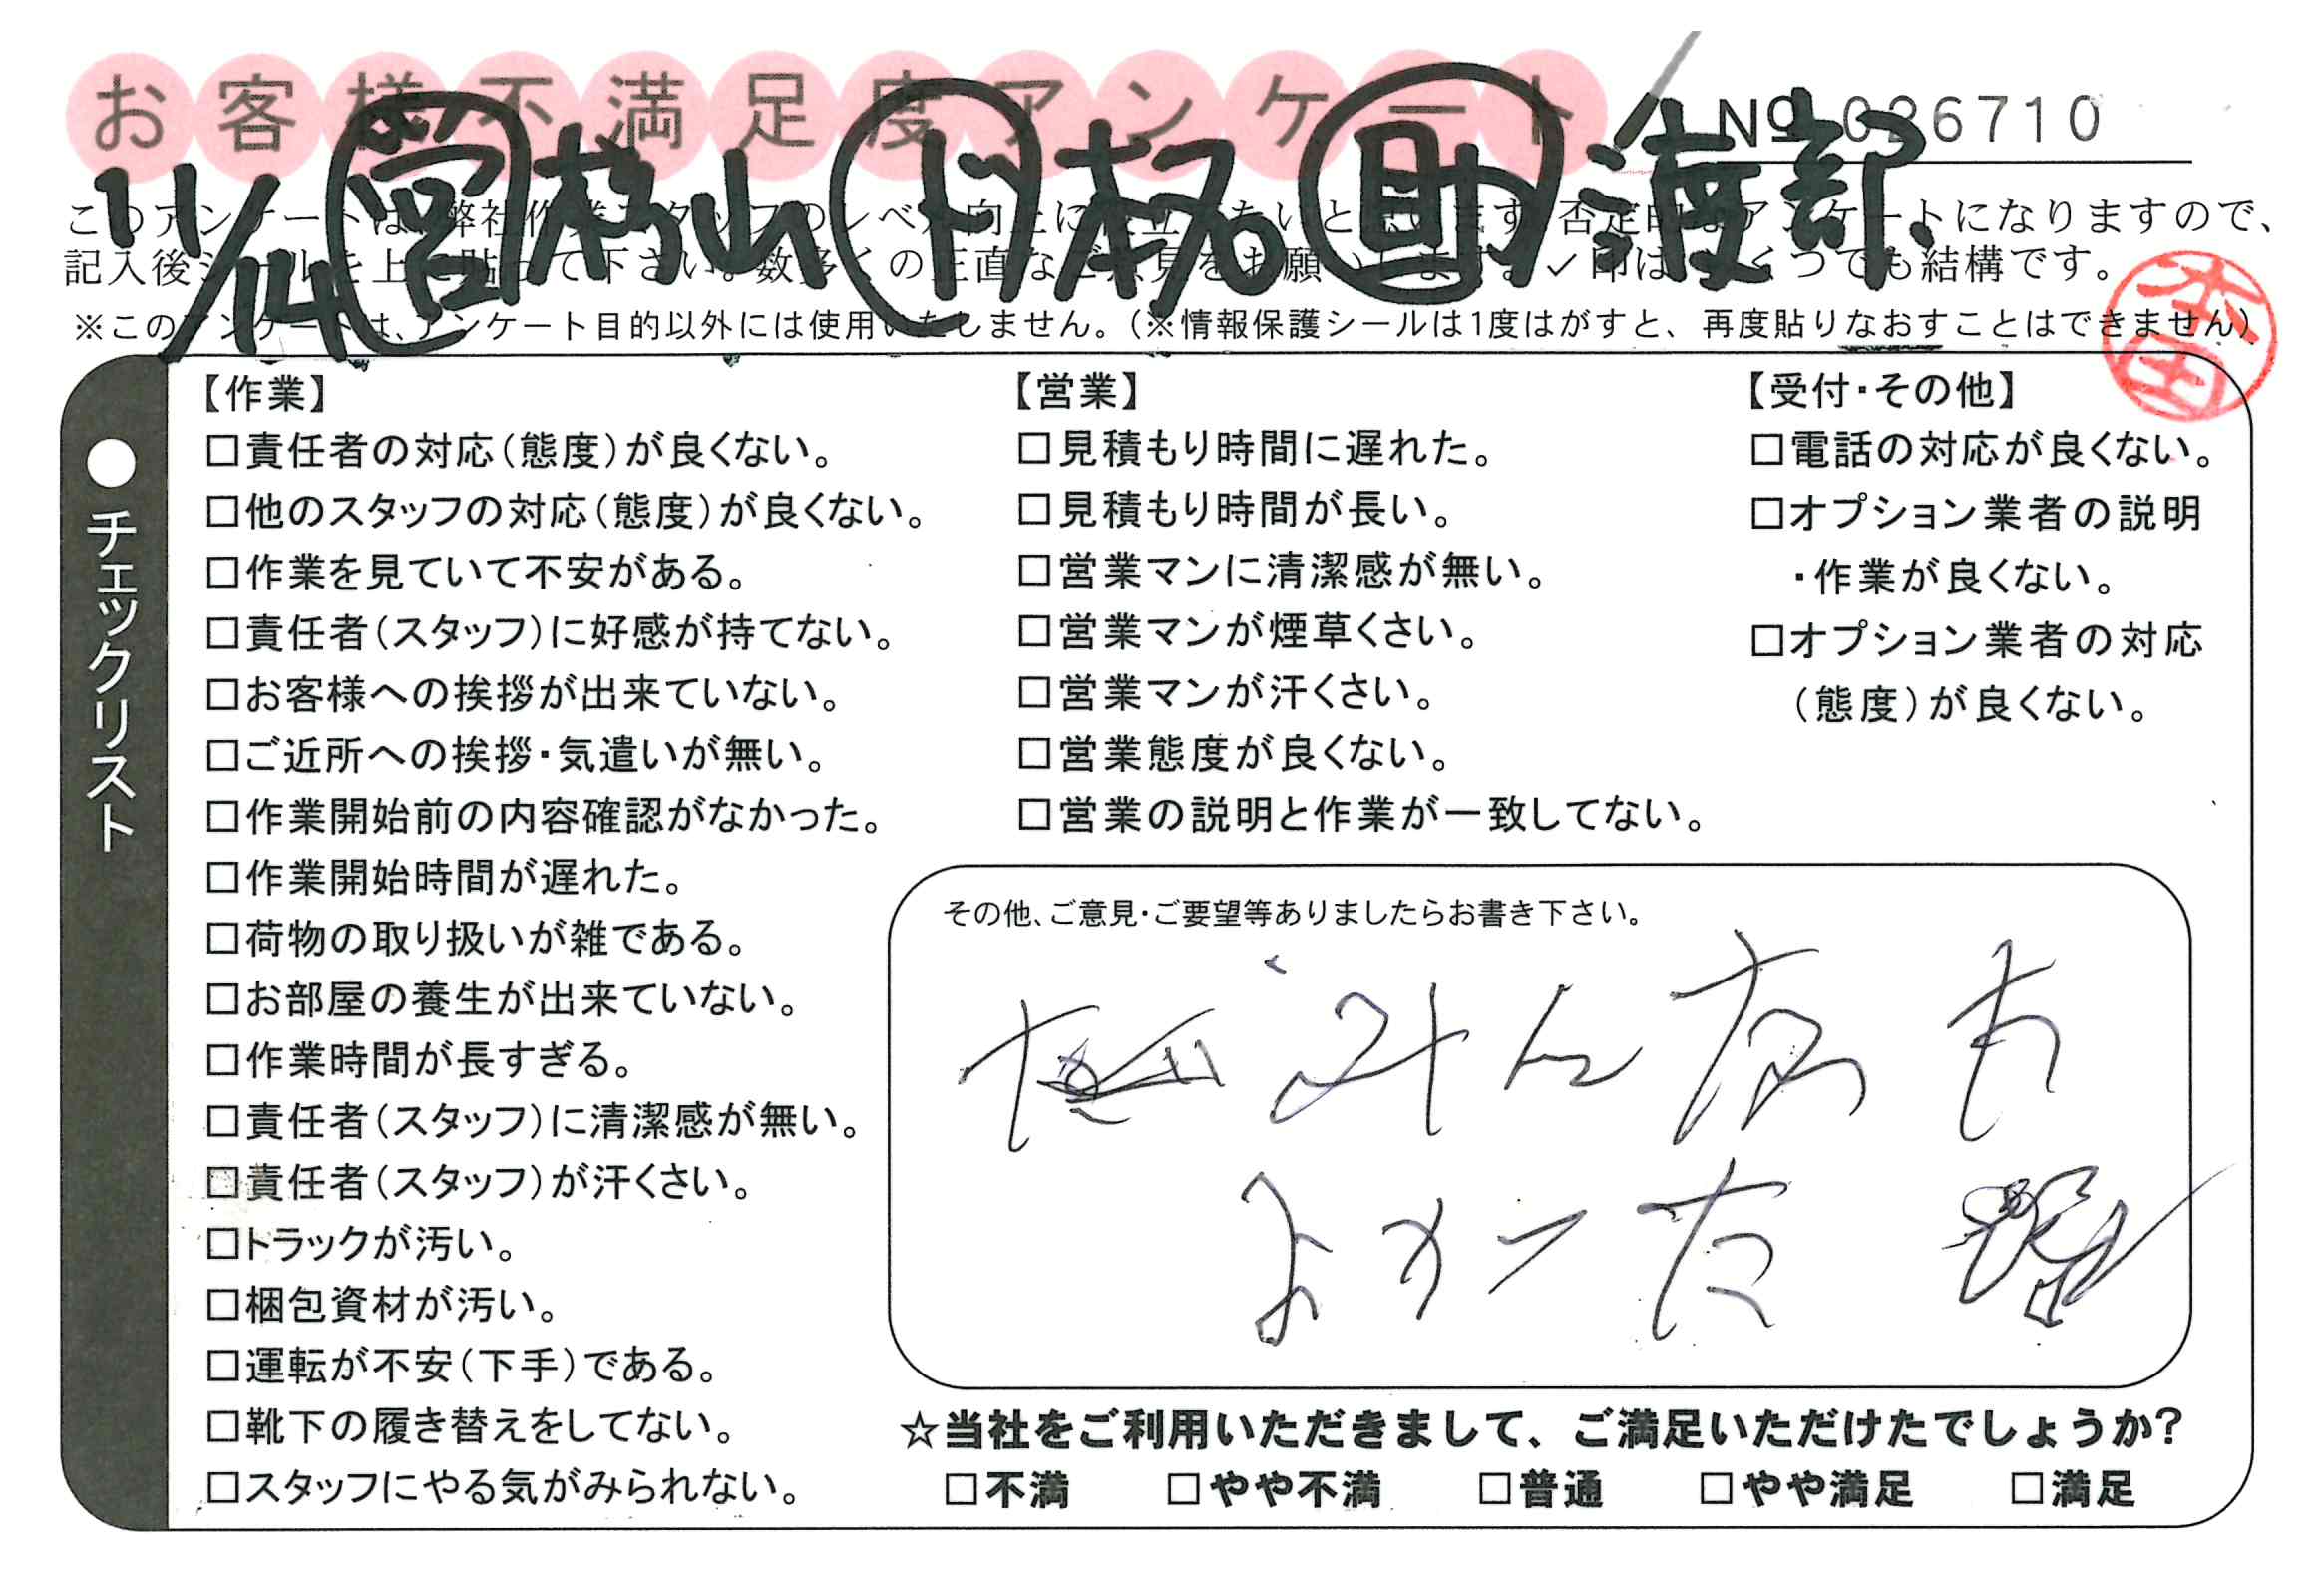 お客様不満足度アンケート
№ 036710
11/14 営 杉山 ド 格 助 海部
このアンケートは、弊社作業スタッフのレベル向上に役立てたいと思います。否定的なアンケートになりますので、
記入後シールを上に貼って下さい。数多くの正直なご意見をお願いします。✓印はいくつでも結構です。
※このアンケートは、アンケート目的以外には使用いたしません。(※情報保護シールは1度はがすと、再度貼りなおすことはできません)
本田
●チェックリスト
【作業】
□責任者の対応(態度)が良くない。
□他のスタッフの対応(態度)が良くない。
□作業を見ていて不安がある。
□責任者(スタッフ)に好感が持てない。
□お客様への挨拶が出来ていない。
□ご近所への挨拶・気遣いが無い。
□作業開始前の内容確認がなかった。
□作業開始時間が遅れた。
□荷物の取り扱いが雑である。
□お部屋の養生が出来ていない。
□作業時間が長すぎる。
□責任者(スタッフ)に清潔感が無い。
□責任者(スタッフ)が汗くさい。
□トラックが汚い。
□梱包資材が汚い。
□運転が不安(下手)である。
□靴下の履き替えをしてない。
□スタッフにやる気がみられない。
【営業】
□見積もり時間に遅れた。
□見積もり時間が長い。
□営業マンに清潔感が無い。
□営業マンが煙草くさい。
□営業マンが汗くさい。
□営業態度が良くない。
□営業の説明と作業が一致してない。
【受付・その他】
□電話の対応が良くない。
□オプション業者の説明
・作業が良くない。
□オプション業者の対応
(態度)が良くない。
その他、ご意見・ご要望等ありましたらお書き下さい。
みんな
よかった
☆当社をご利用いただきまして、ご満足いただけたでしょうか?
□不満 □やや不満 □普通 □やや満足 □満足